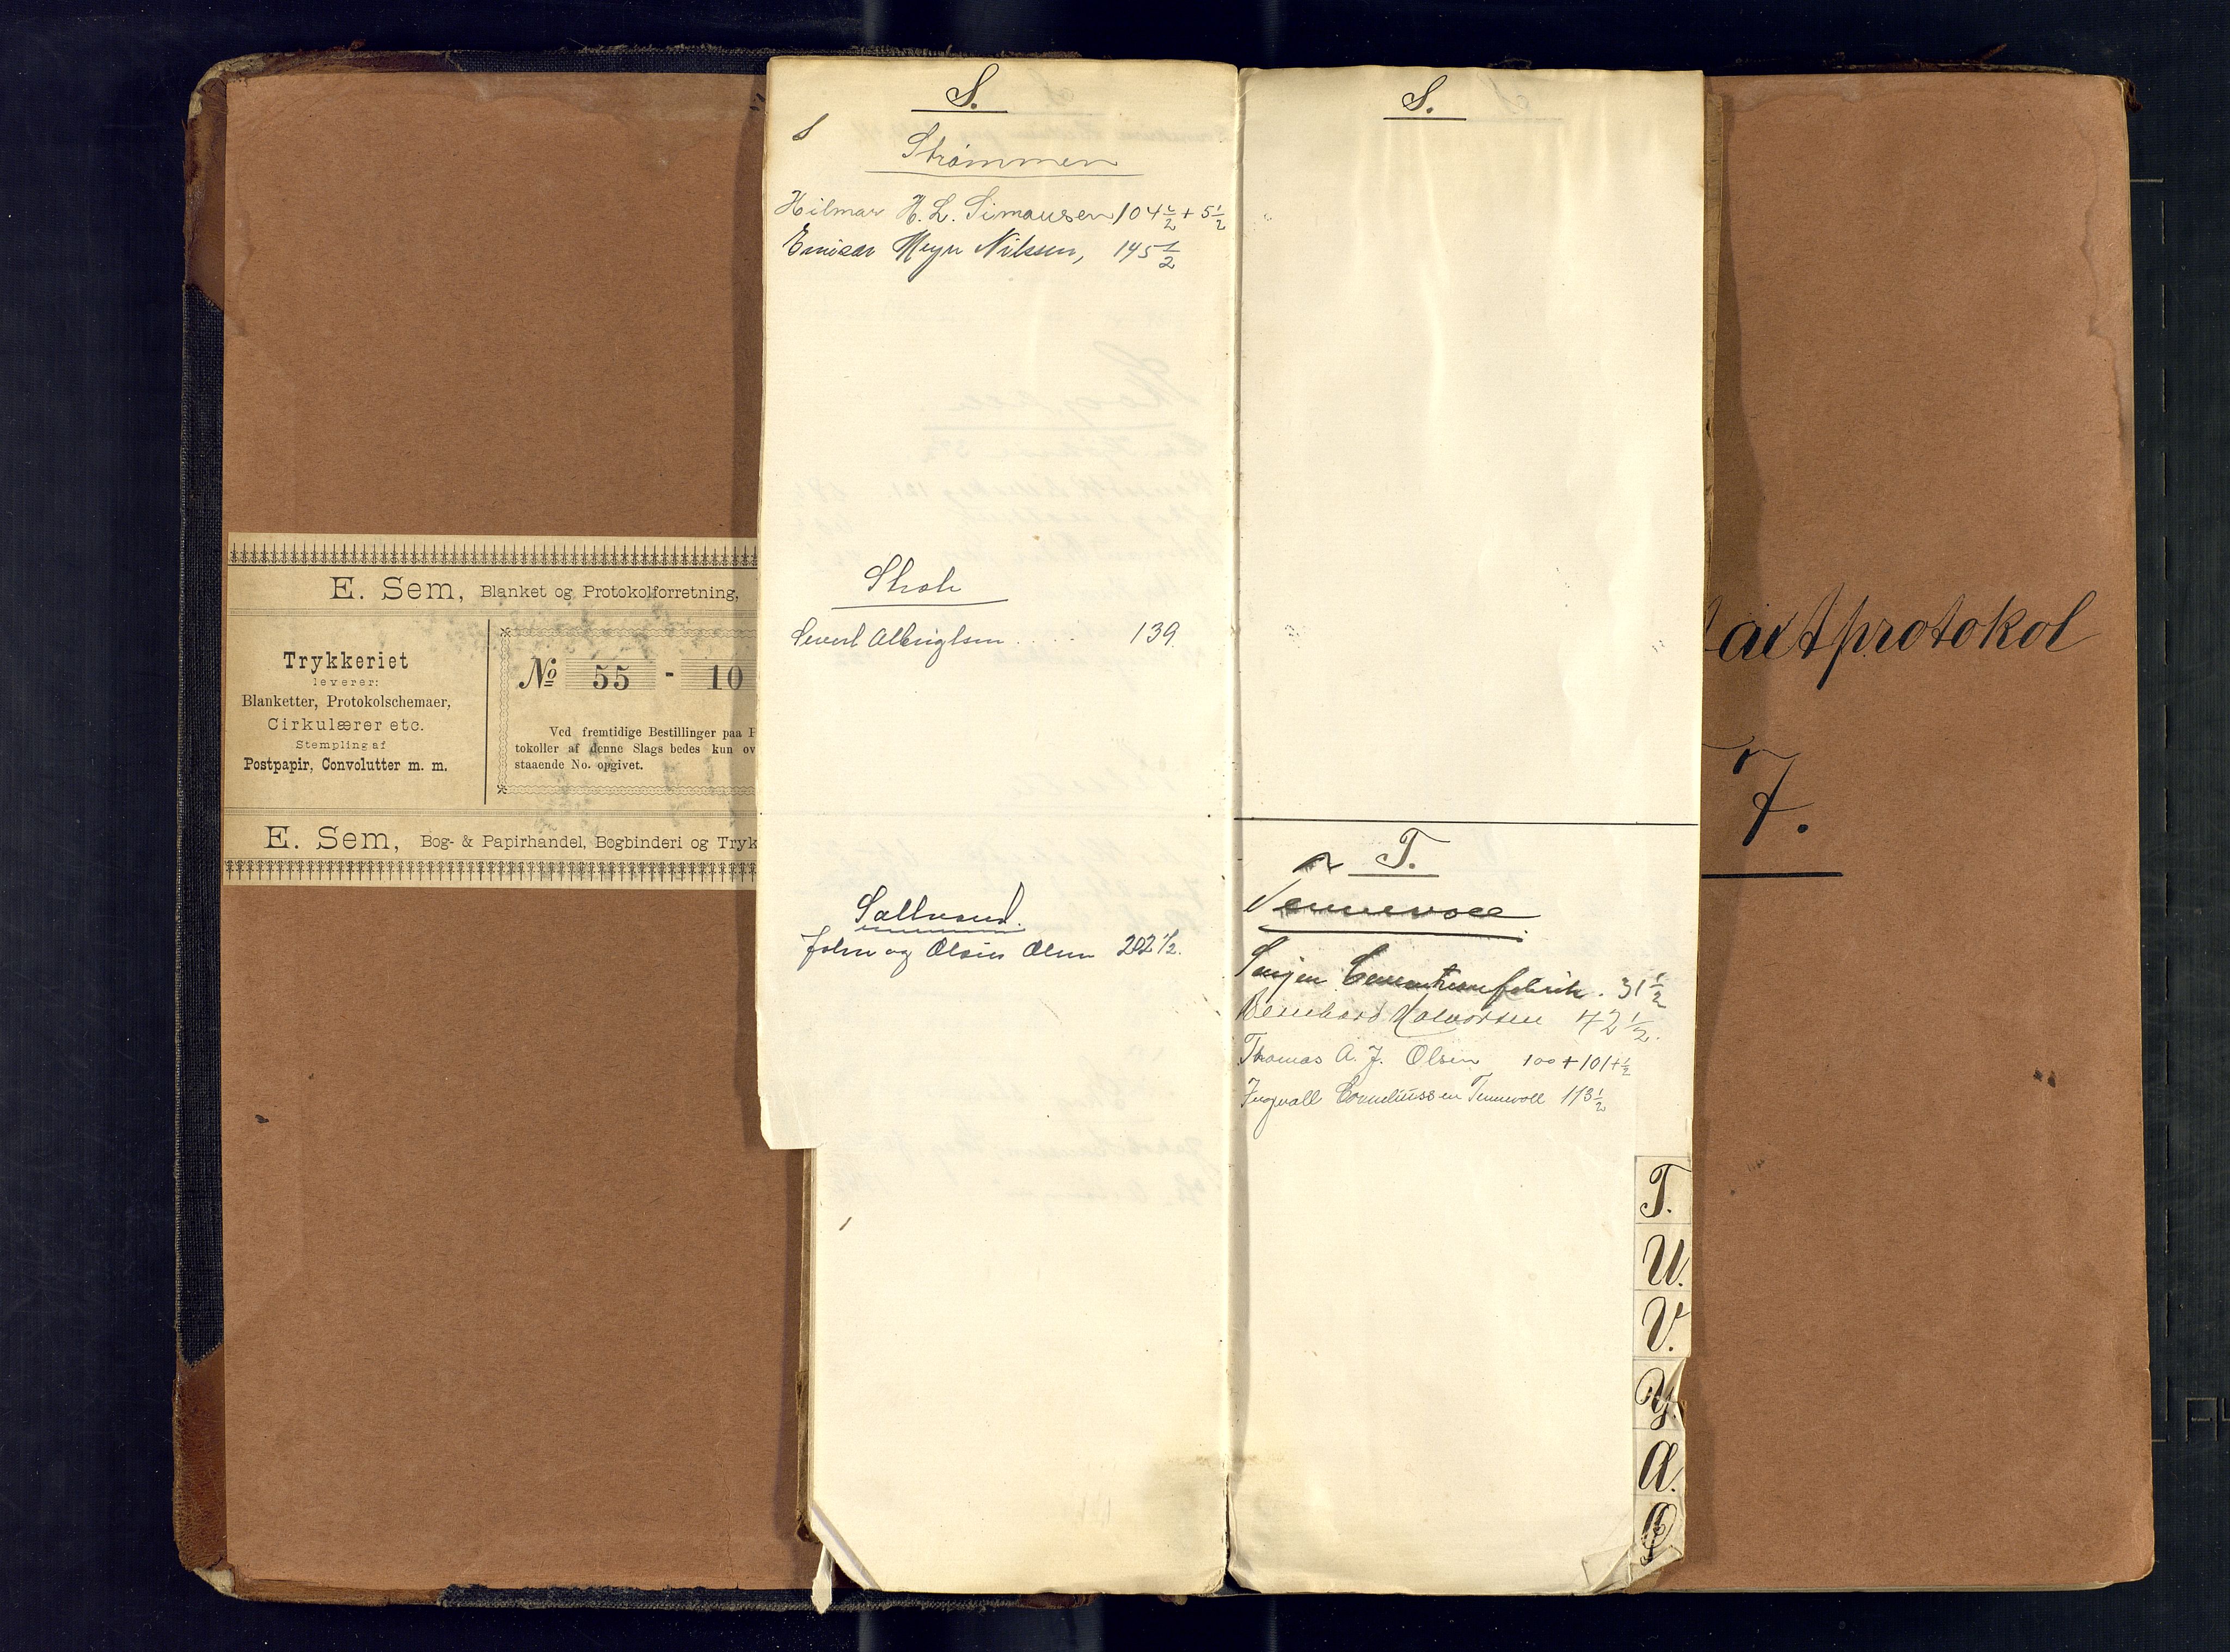 E. Sem, Blanket og Protokolforretning,
Trykkeriet
leverer:
Blanketter, Protokolschemaer,
Cirkulærer etc.
Stempling af
Postpapir, Convolutter m. m.
No 55 - 10
Ved fremtidige Bestillinger paa P
tokoller af denne Slags bedes kun ov
staaende No. opgivet.
E. Sem, Bog- & Papirhandel, Bogbinderi og Tryk
S.
Strömmen
Hilmar H. L. Simonsen 104 1/2 + 5 1/2
Meyer Nilssen, 145 1/2
139
John og Olsen 202 1/2.
S.
T.
Tennevoll
31 1/2
Bernhard Halvorsen 42 1/2.
Thomas A. J. Olsen 100 + 101 + 1/2
Ingvall Corneliussen Tennevoll 113 1/2
T.
U.
V.
Y.
Æ.
Ø
axtprotokol
7.